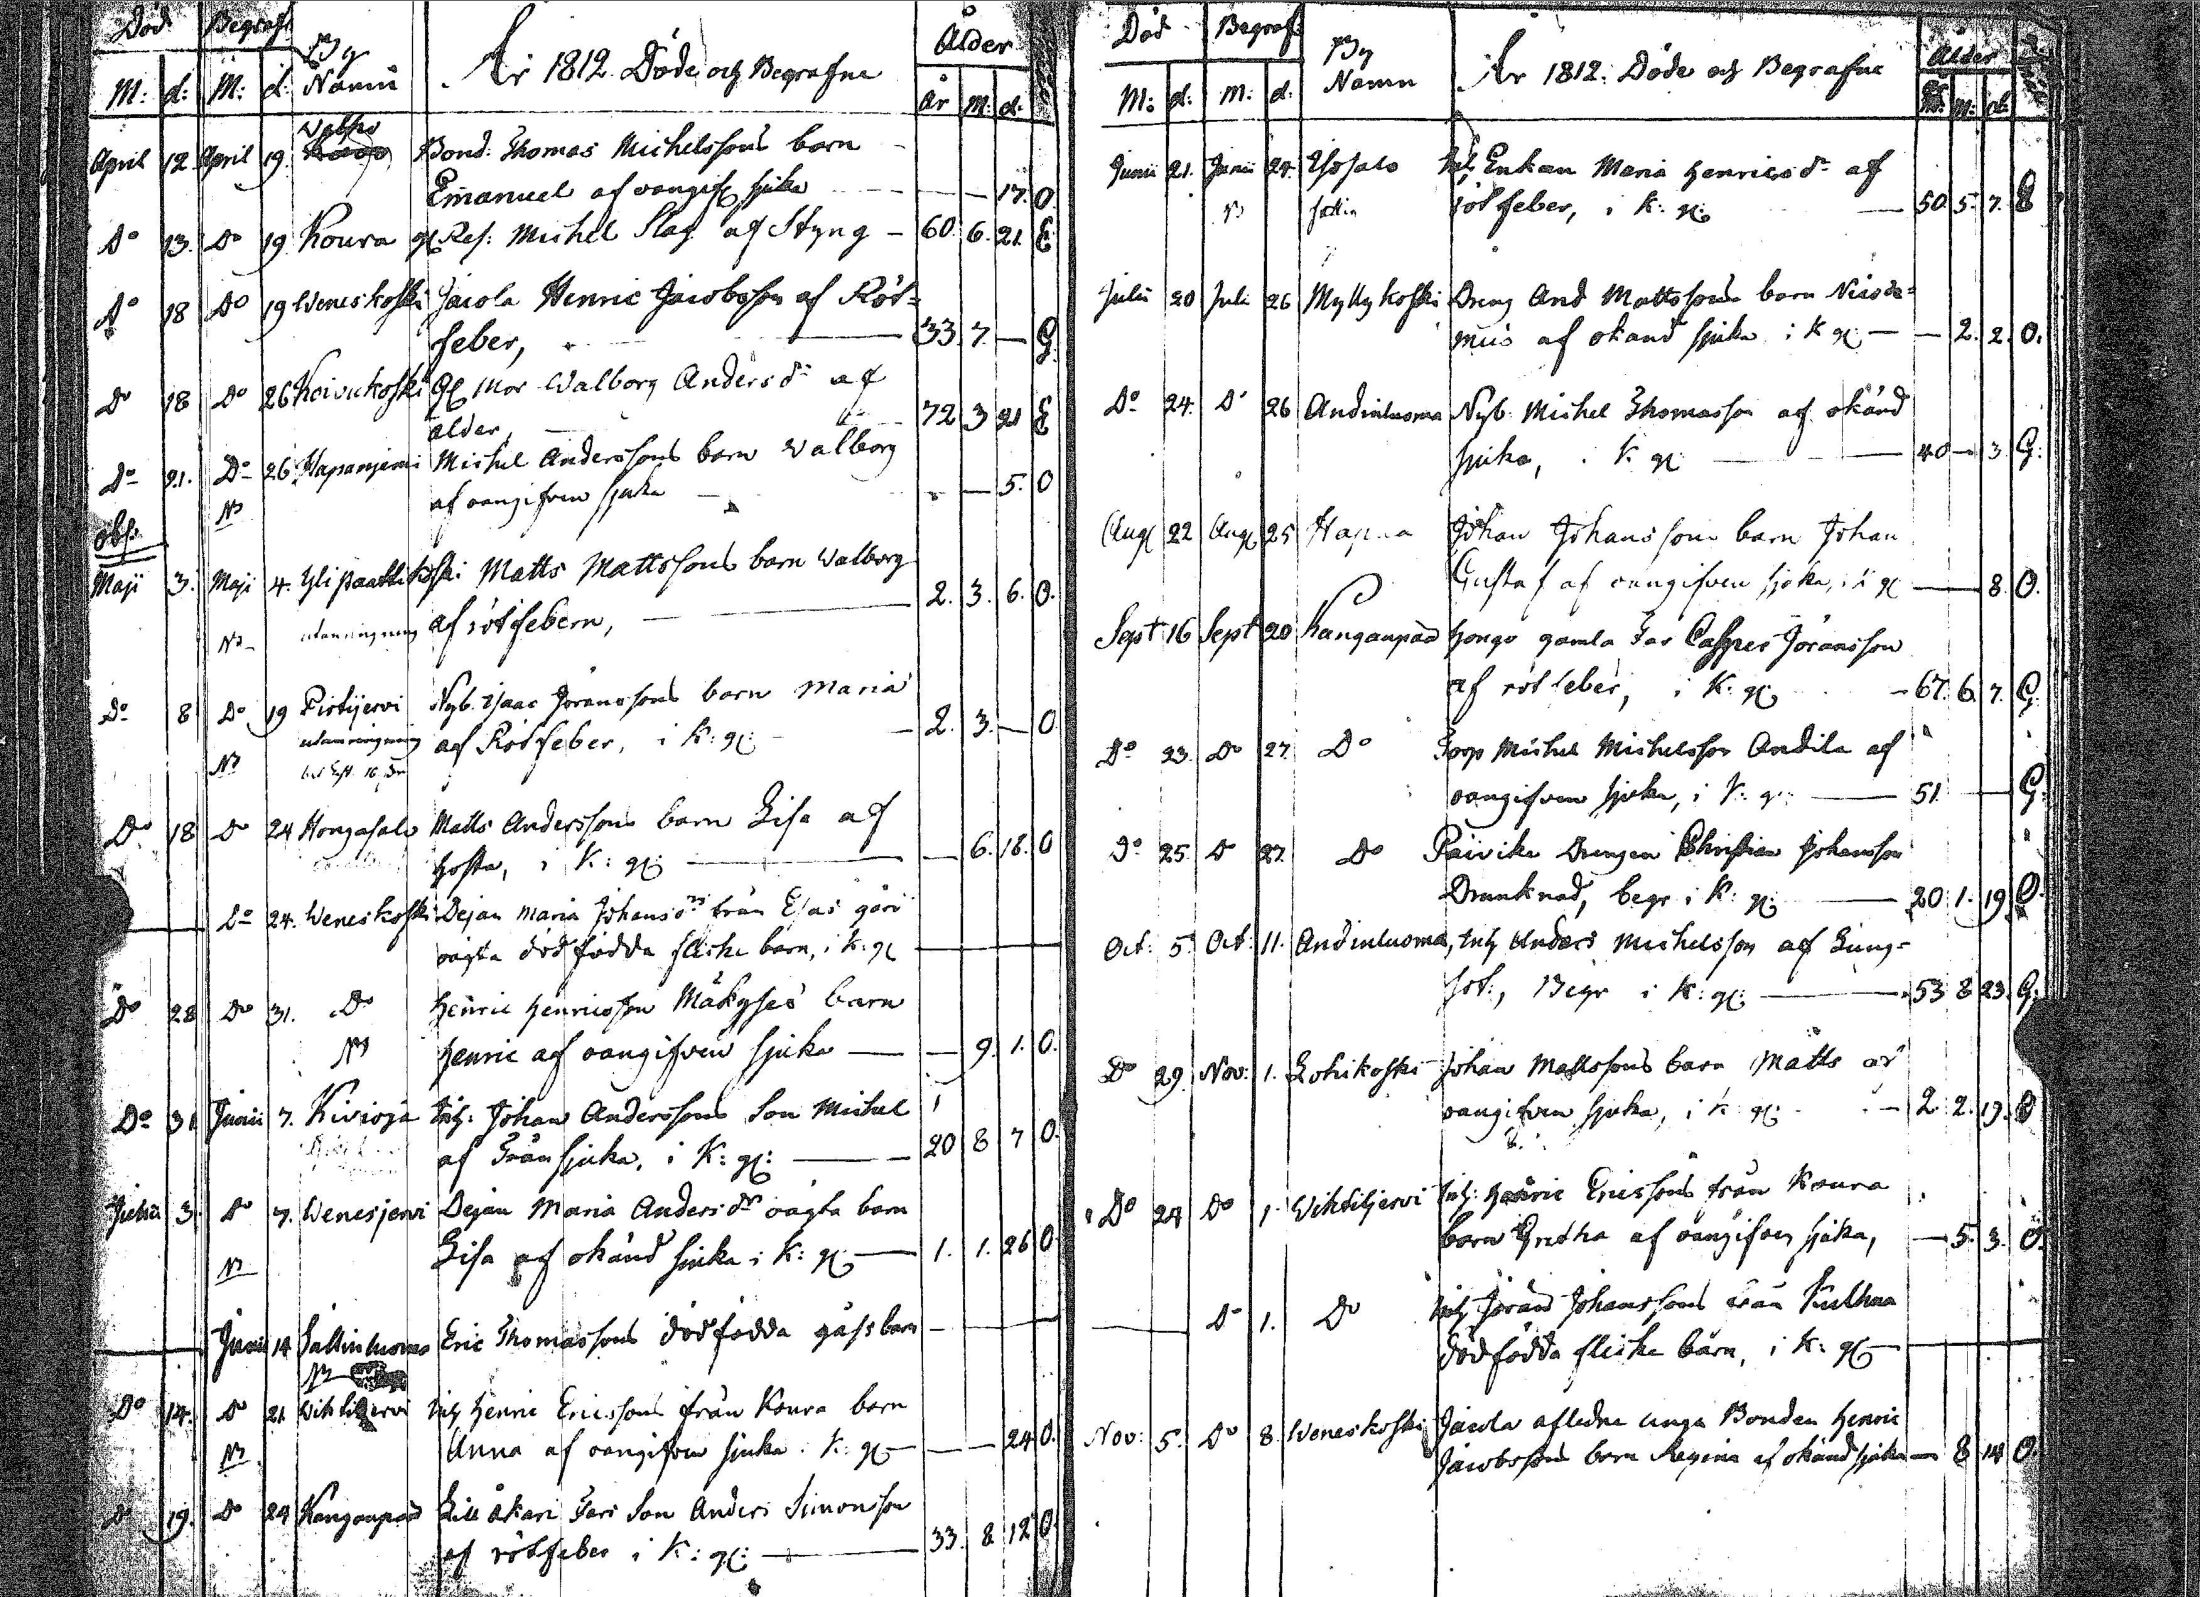 Död Begrafs By Åldér
M: d: M: d: Namn År 1812 Döde och Begrafne år M: d:
Wakho
April 12 April 19. Bond: Thomas Michelssons barn
Emanuel af oangif sjuka — — 17. O
Do 13. Do 19 Koura Michel Slag af Styng — 60. 6. 21. E
Do 18 Do 19 Weneskoski Jacola Henric Jacobsson af Röt=
feber, 33 7. — G.
Do 18 Do 26 Koivukoski Gl Mor Walborg Andersdr af
ålder, 72 3 21 E
Do 21. Do 26 Hapanjerwi Michel Anderssons barn Walborg
N3 af oangifven sjuka — — 5. O
obs:
Maji 3. Maji 4. Ylipaattikoski Matts Mattssons barn Walborg
N3 utanringning af rötfebern, 2. 3. 6. O.
Do 8 Do 19 Pistijervi Nyb. Isaac Göranssons barn Maria
utanringning af Rötfeber, i K: g: 2. 3. — O
N3
Do 18 Do 24 Hongasalo Matts Anderssons barn Lisa af
hosta, i K: g: — 6. 18. O
Do 24. Weneskoski Dejan Maria Johansdr från
oägta dödfödda flicke barn, i K: g
Do 28 Do 31. Do Henric Henricsson Mäkyses barn
N3 Henric af oangifven sjuka — — 9. 1. O.
Do 31 Junii 7. Kivioja Inh: Johan Anderssons Son Michel
af Frånsjuka, i K: g: — 20 8 7 O.
Junii 3. Do 7. Wenesjerwi Dejan Maria Andersdr oägta barn
N3 Lisa af okänd sjuka i K: g — 1. 1. 26 O
Junii 14 Sallinluoma Eric Thomassons dödfödda gåssbarn
N3
Do 14. Do 21 Wihtiljerwi Inh Henric Ericssons från Koura barn
N3 Anna af oangifven sjuka i K: g — — — 24 O.
Do 19. Do 24 Kanganpää Lill Åkari Fars Son Anders Simonsson
af rötfeber i K: g: — 33. 8. 12 O
Död Begraf: By Ålder
M: d: M: d: Namn År 1812: Döde och Begrafne år M: d:
Junii 21. Junii 24. Ylosalo Inh Enkan Maria Henricsdr af
N3 rötfeber, i K: g: — 50 5. 7. E
Julii 20 Julii 26 Myllykoski Dreng And Mattssons barn Nicode=
mus af okänd sjuka i K g: — — 2. 2. O.
Do 24. Do 26 Andinluoma Nyb. Michel Thomasson af okänd
sjuka, i K: g: — 40 — 3 G.
Aug 22 Aug 25 Hapua Johan Johanssons barn Johan
Gustaf af oangifven sjuka, i K g — — 8. O.
Sept 16 Sept 20 Kanganpää Hongo gamla Far Casper Jöransson
af rötfeber, i K: g: — 67. 6. 7. G.
Do 23. Do 27. Do Torp Michel Michelsson Andila af
oangifven sjuka, i K: g: — 51 — G.
Do 25. Do 27. Do Päivike Drengen Christian Johansson
Drunknad, begr i K: g: — 20 1. 19 O.
Oct: 5. Oct: 11. Andinluoma, Inh Anders Michelsson af Lung=
sot:, Begr i K: g: — 53 8 23. G.
Do 29 Nov: 1. Lohikoski Johan Mattssons barn Matts af
oangifven sjuka, i K: g: — 2. 2. 19. O
Do 24 Do 1. Wihtiljerwi Inh: Henric Ericssons från Koura
barn Gretha af oangifven sjuka, — 5. 3. O.
Do 1. Do Inh Jöran Johanssons från
dödfödda flicke barn, i K: g —
Nov: 5. Do 8. Weneskoski Jacola afledne unga Bonden Henric
Jacobssons barn Regina af okänd sjuka — 8 14 O.